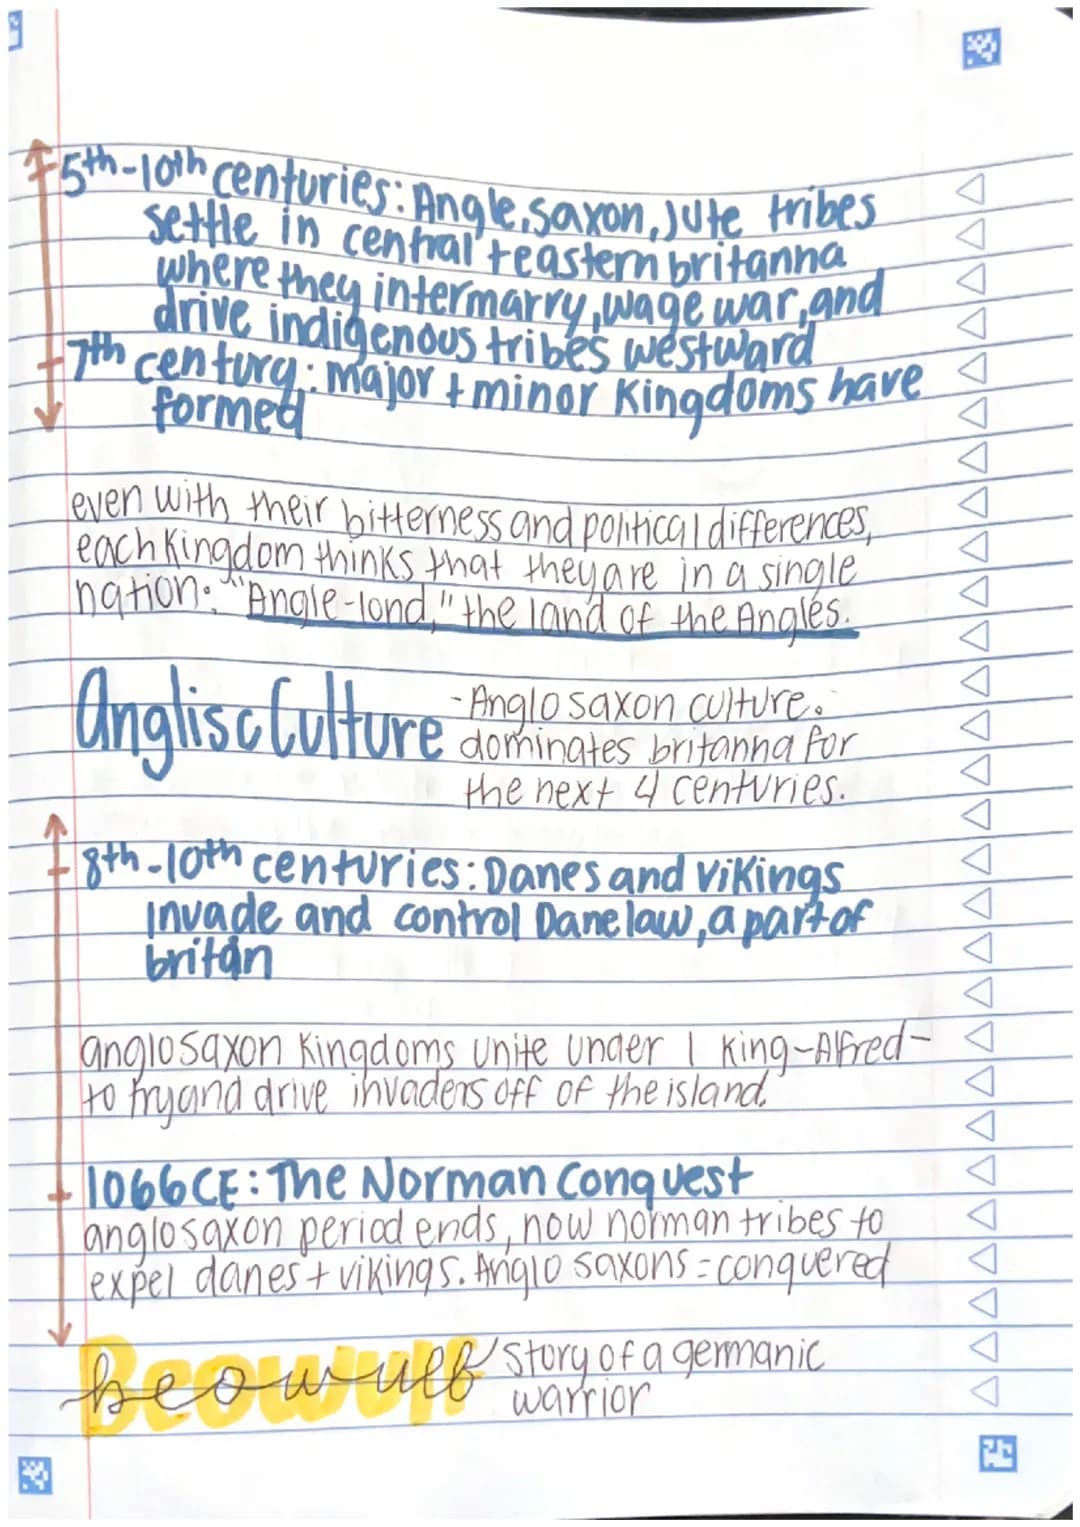 5th-10th centuries: Angle, Saxon, Jute tribes
settle in central + eastern britanna
where they intermarry, wage war, and
drive indigenous tribes westward
7th century: major + minor Kingdoms have
formed
even with their bitterness and political differences,
each Kingdom thinks that they are in a single
nation: "Angle-lond," the land of the Angles.
Anglisc Culture
- Anglo saxon culture.
dominates britanna for
the next 4 centuries.
8th-10th centuries: Danes and Vikings
invade and control Danelaw, a part of
britan
anglosaxon Kingdoms unite under 1 king-Alfred-
to try and drive invaders off of the island.
1066CE: The Norman Conquest
anglosaxon period ends, now norman tribes to
expel danes + vikings. Anglo saxons = conquered
Beowulf
beowulf
story of a germanic
warrior